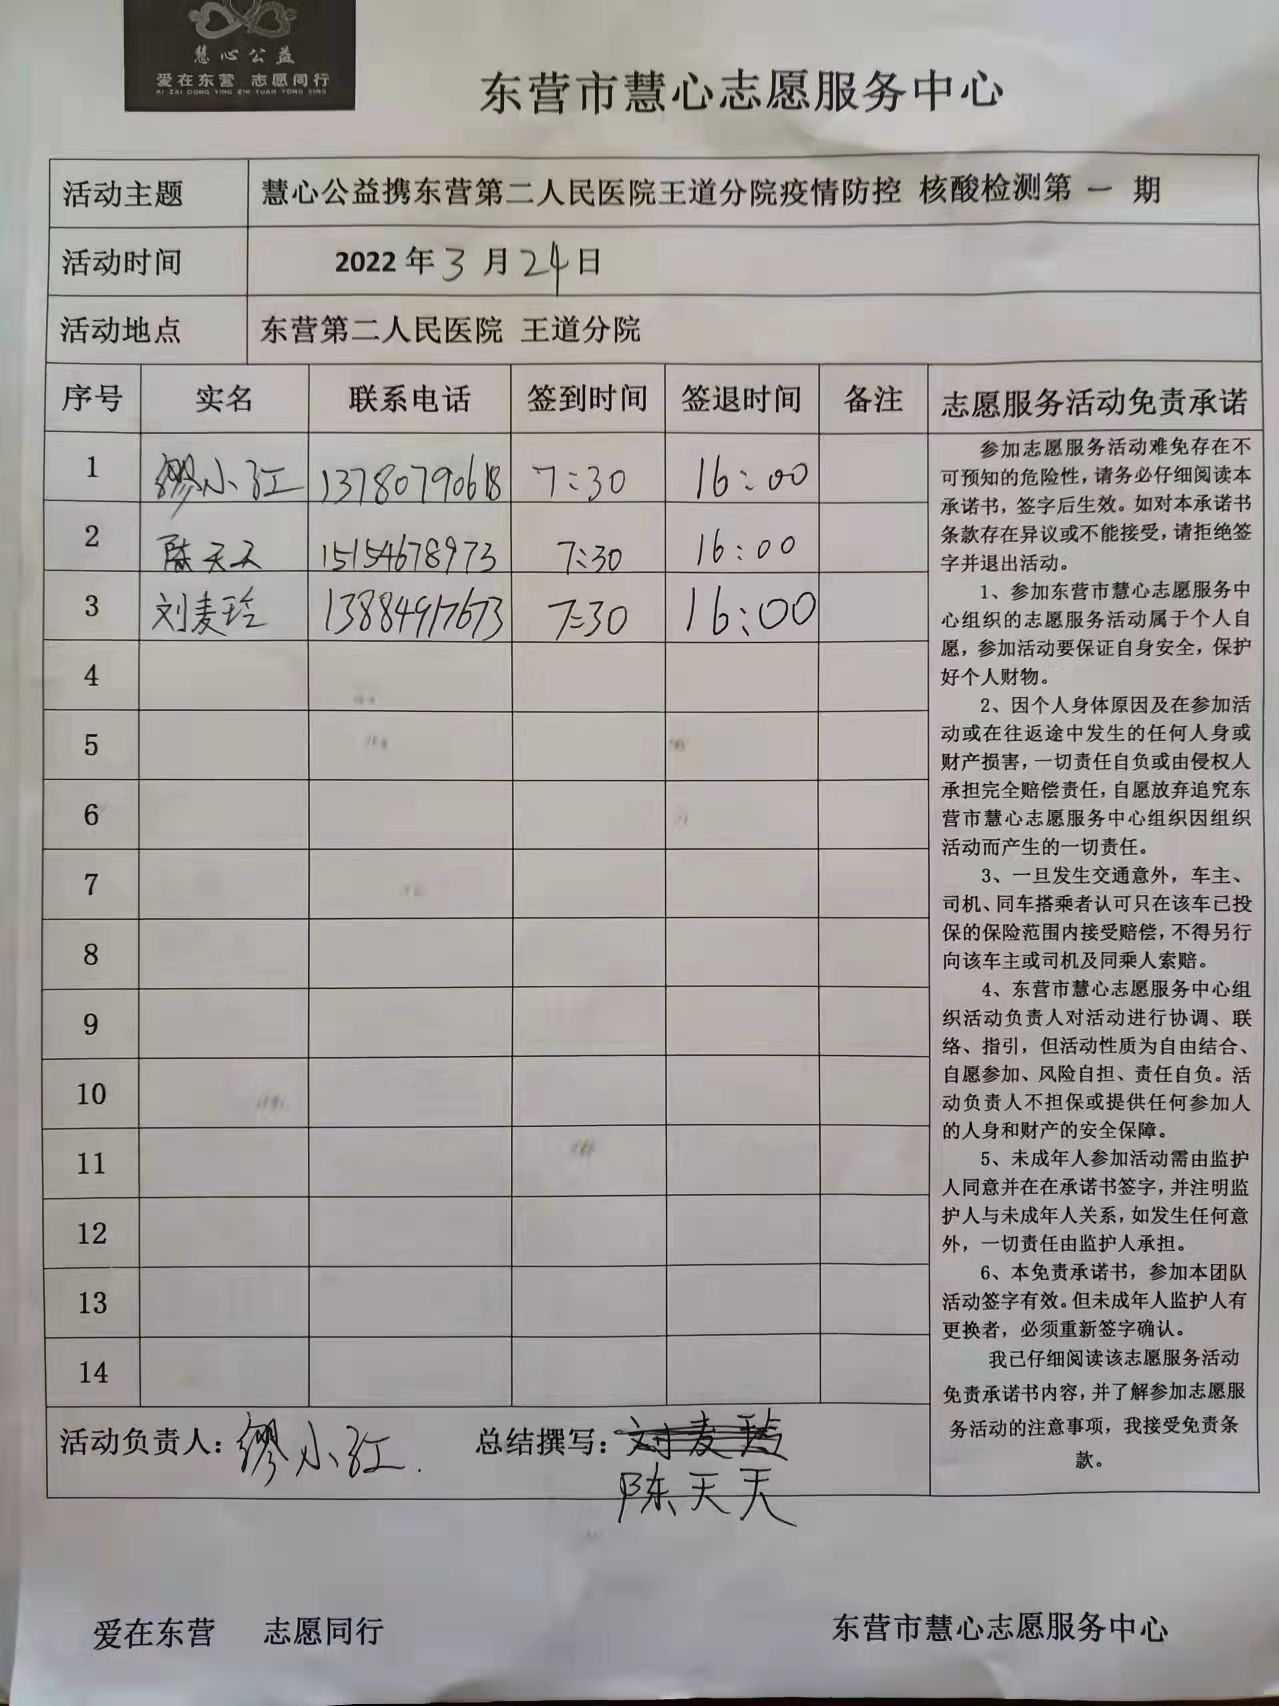 慧心公益
爱在东营 志愿同行
AI ZAI DONG YING ZHI YUAN TONG XING
东营市慧心志愿服务中心
活动主题 慧心公益携东营第二人民医院王道分院疫情防控 核酸检测第 一 期
活动时间 2022 年 3 月 24 日
活动地点 东营第二人民医院 王道分院
序号 实名 联系电话 签到时间 签退时间 备注 志愿服务活动免责承诺
1 缪小红 13780790618 7:30 16:00
2 陈天天 15154678973 7:30 16:00
3 刘麦玲 13884917673 7:30 16:00
4
5
6
7
8
9
10
11
12
13
14
参加志愿服务活动难免存在不
可预知的危险性，请务必仔细阅读本
承诺书，签字后生效。如对本承诺书
条款存在异议或不能接受，请拒绝签
字并退出活动。
1、参加东营市慧心志愿服务中
心组织的志愿服务活动属于个人自
愿，参加活动要保证自身安全，保护
好个人财物。
2、因个人身体原因及在参加活
动或在往返途中发生的任何人身或
财产损害，一切责任自负或由侵权人
承担完全赔偿责任，自愿放弃追究东
营市慧心志愿服务中心组织因组织
活动而产生的一切责任。
3、一旦发生交通意外，车主、
司机、同车搭乘者认可只在该车已投
保的保险范围内接受赔偿，不得另行
向该车主或司机及同乘人索赔。
4、东营市慧心志愿服务中心组
织活动负责人对活动进行协调、联
络、指引，但活动性质为自由结合、
自愿参加、风险自担、责任自负。活
动负责人不担保或提供任何参加人
的人身和财产的安全保障。
5、未成年人参加活动需由监护
人同意并在在承诺书签字，并注明监
护人与未成年人关系，如发生任何意
外，一切责任由监护人承担。
6、本免责承诺书，参加本团队
活动签字有效。但未成年人监护人有
更换者，必须重新签字确认。
我已仔细阅读该志愿服务活动
免责承诺书内容，并了解参加志愿服
务活动的注意事项，我接受免责条
款。
活动负责人：缪小红. 总结撰写：刘麦玲
陈天天
爱在东营 志愿同行 东营市慧心志愿服务中心